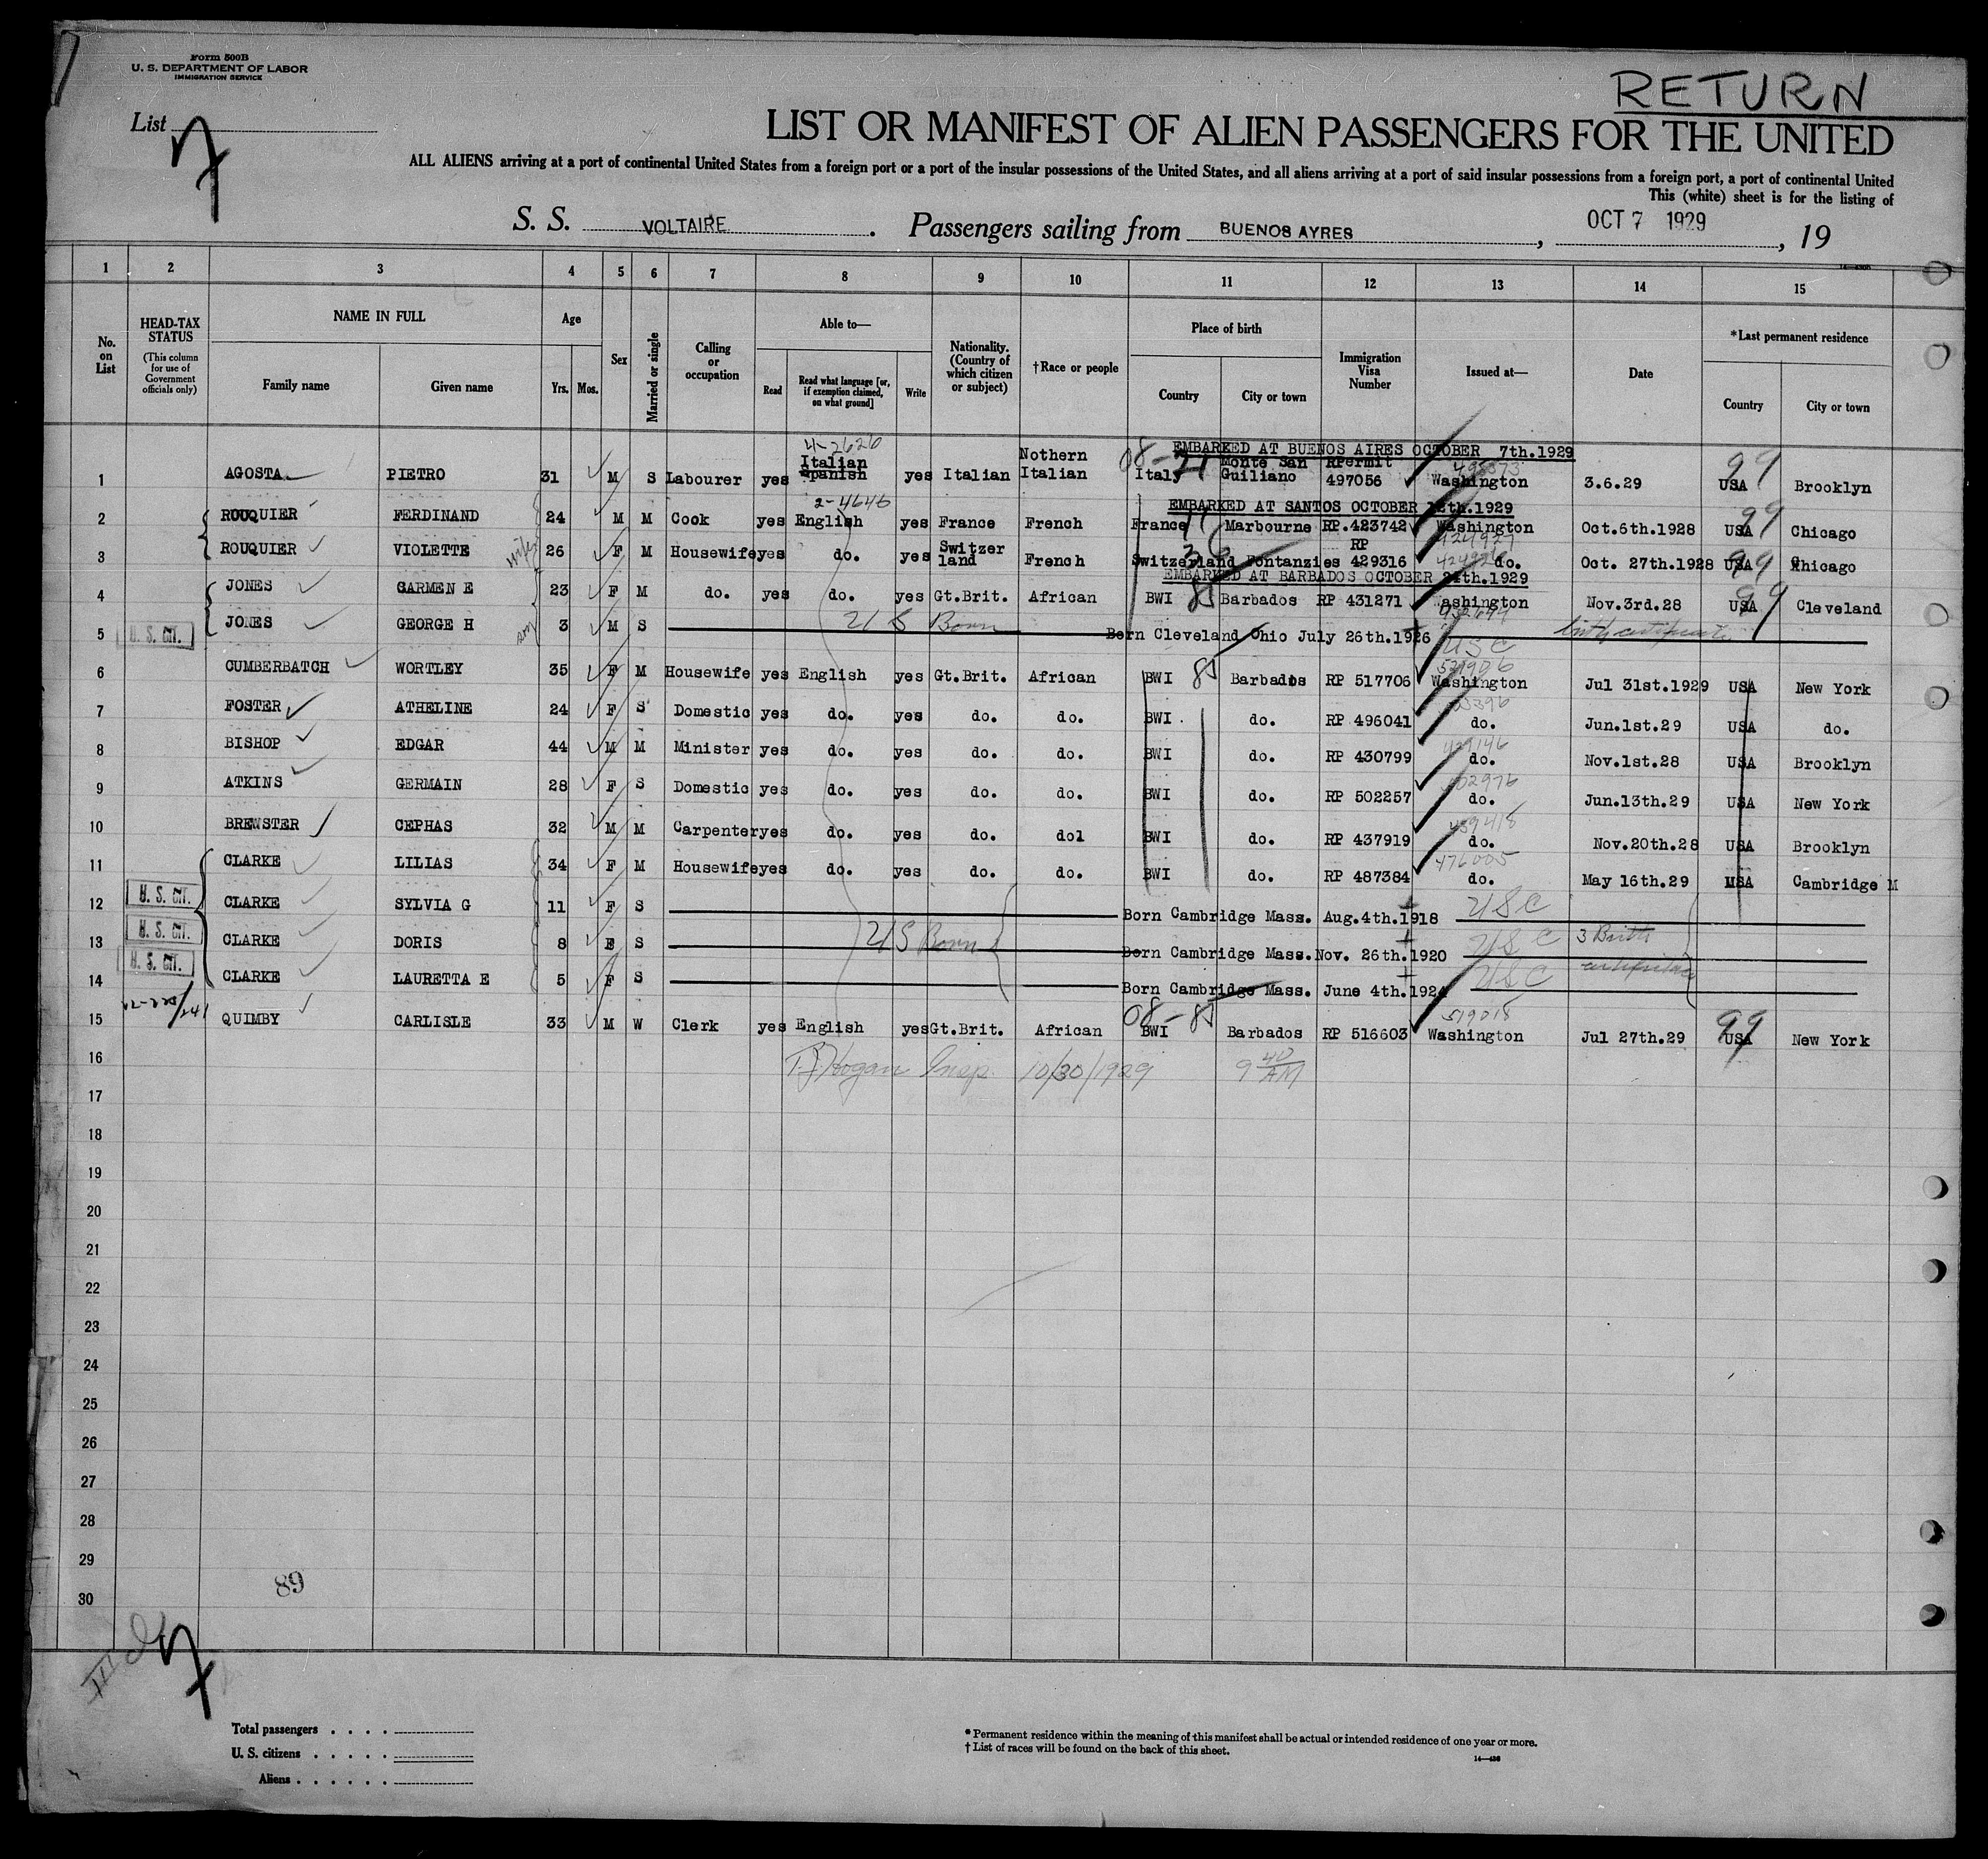 Form 500B
U. S. DEPARTMENT OF LABOR
IMMIGRATION SERVICE
RETURN
List 7
LIST OR MANIFEST OF ALIEN PASSENGERS FOR THE UNITED
ALL ALIENS arriving at a port of continental United States from a foreign port or a port of the insular possessions of the United States, and all aliens arriving at a port of said insular possessions from a foreign port, a port of continental United
This (white) sheet is for the listing of
S. S. VOLTAIRE. Passengers sailing from BUENOS AYRES, OCT 7 1929, 19
1 2 3 4 5 6 7 8 9 10 11 12 13 14 15
No. on List
HEAD-TAX STATUS (This column for use of Government officials only)
NAME IN FULL
Family name Given name
Age
Yrs. Mos.
Sex
Married or single
Calling or occupation
Able to—
Read Read what language [or, if exemption claimed, on what ground] Write
Nationality. (Country of which citizen or subject)
†Race or people
Place of birth
Country City or town
Immigration Visa Number
Issued at—
Date
*Last permanent residence
Country City or town
4-2626
EMBARKED AT BUENOS AIRES OCTOBER 7th.1929
1 AGOSTA PIETRO 31 M S Labourer yes Italian Spanish yes Italian Nothern Italian 08-21 Italy Monte San Guiliano RPermit 497056 Washington 3.6.29 USA 99 Brooklyn
2-4646
EMBARKED AT SANTOS OCTOBER th.1929
2 ROUQUIER FERDINAND 24 M M Cook yes English yes France French France Marbourne RP.423742 Washington Oct.6th.1928 USA 99 Chicago
3 ROUQUIER VIOLETTE wife 26 F M Housewife yes do. yes Switzerland French Switzerland Fontanzies RP 429316 do. Oct. 27th.1928 USA 99 Chicago
EMBARKED AT BARBADOS OCTOBER 24th.1929
4 JONES GARMEN E 23 F M do. yes do. yes Gt.Brit. African BWI 85 Barbados RP 431271 Washington Nov.3rd.28 USA 99 Cleveland
5 U. S. CIT. JONES GEORGE H son 3 M S U S Born Born Cleveland Ohio July 26th.1926 USC birth certificate
6 CUMBERBATCH WORTLEY 35 F M Housewife yes English yes Gt.Brit. African BWI 85 Barbados RP 517706 Washington Jul 31st.1929 USA New York
7 FOSTER ATHELINE 24 F S Domestic yes do. yes do. do. BWI do. RP 496041 do. Jun.1st.29 USA do.
8 BISHOP EDGAR 44 M M Minister yes do. yes do. do. BWI do. RP 430799 do. Nov.1st.28 USA Brooklyn
9 ATKINS GERMAIN 28 F S Domestic yes do. yes do. do. BWI do. RP 502257 do. Jun.13th.29 USA New York
10 BREWSTER CEPHAS 32 M M Carpenter yes do. yes do. dol BWI do. RP 437919 do. Nov.20th.28 USA Brooklyn
11 CLARKE LILIAS 34 F M Housewife yes do. yes do. do. BWI do. RP 487384 476005 do. May 16th.29 USA Cambridge M
12 U. S. CIT. CLARKE SYLVIA G 11 F S Born Cambridge Mass. Aug.4th.1918 USC
13 U. S. CIT. CLARKE DORIS 8 F S U S Born Born Cambridge Mass. Nov. 26th.1920 USC 3 Birth
14 U. S. CIT. CLARKE LAURETTA E 5 F S Born Cambridge Mass. June 4th.1924 USC certificates
15 QUIMBY CARLISLE 33 M W Clerk yes English yes Gt.Brit. African 08-85 BWI Barbados RP 516603 519018 Washington Jul 27th.29 USA 99 New York
16 T.J. Hogan Insp. 10/30/1929 9 40 AM
17
18
19
20
21
22
23
24
25
26
27
28
29
89
30
III
7
Total passengers
U. S. citizens
Aliens
* Permanent residence within the meaning of this manifest shall be actual or intended residence of one year or more.
† List of races will be found on the back of this sheet.